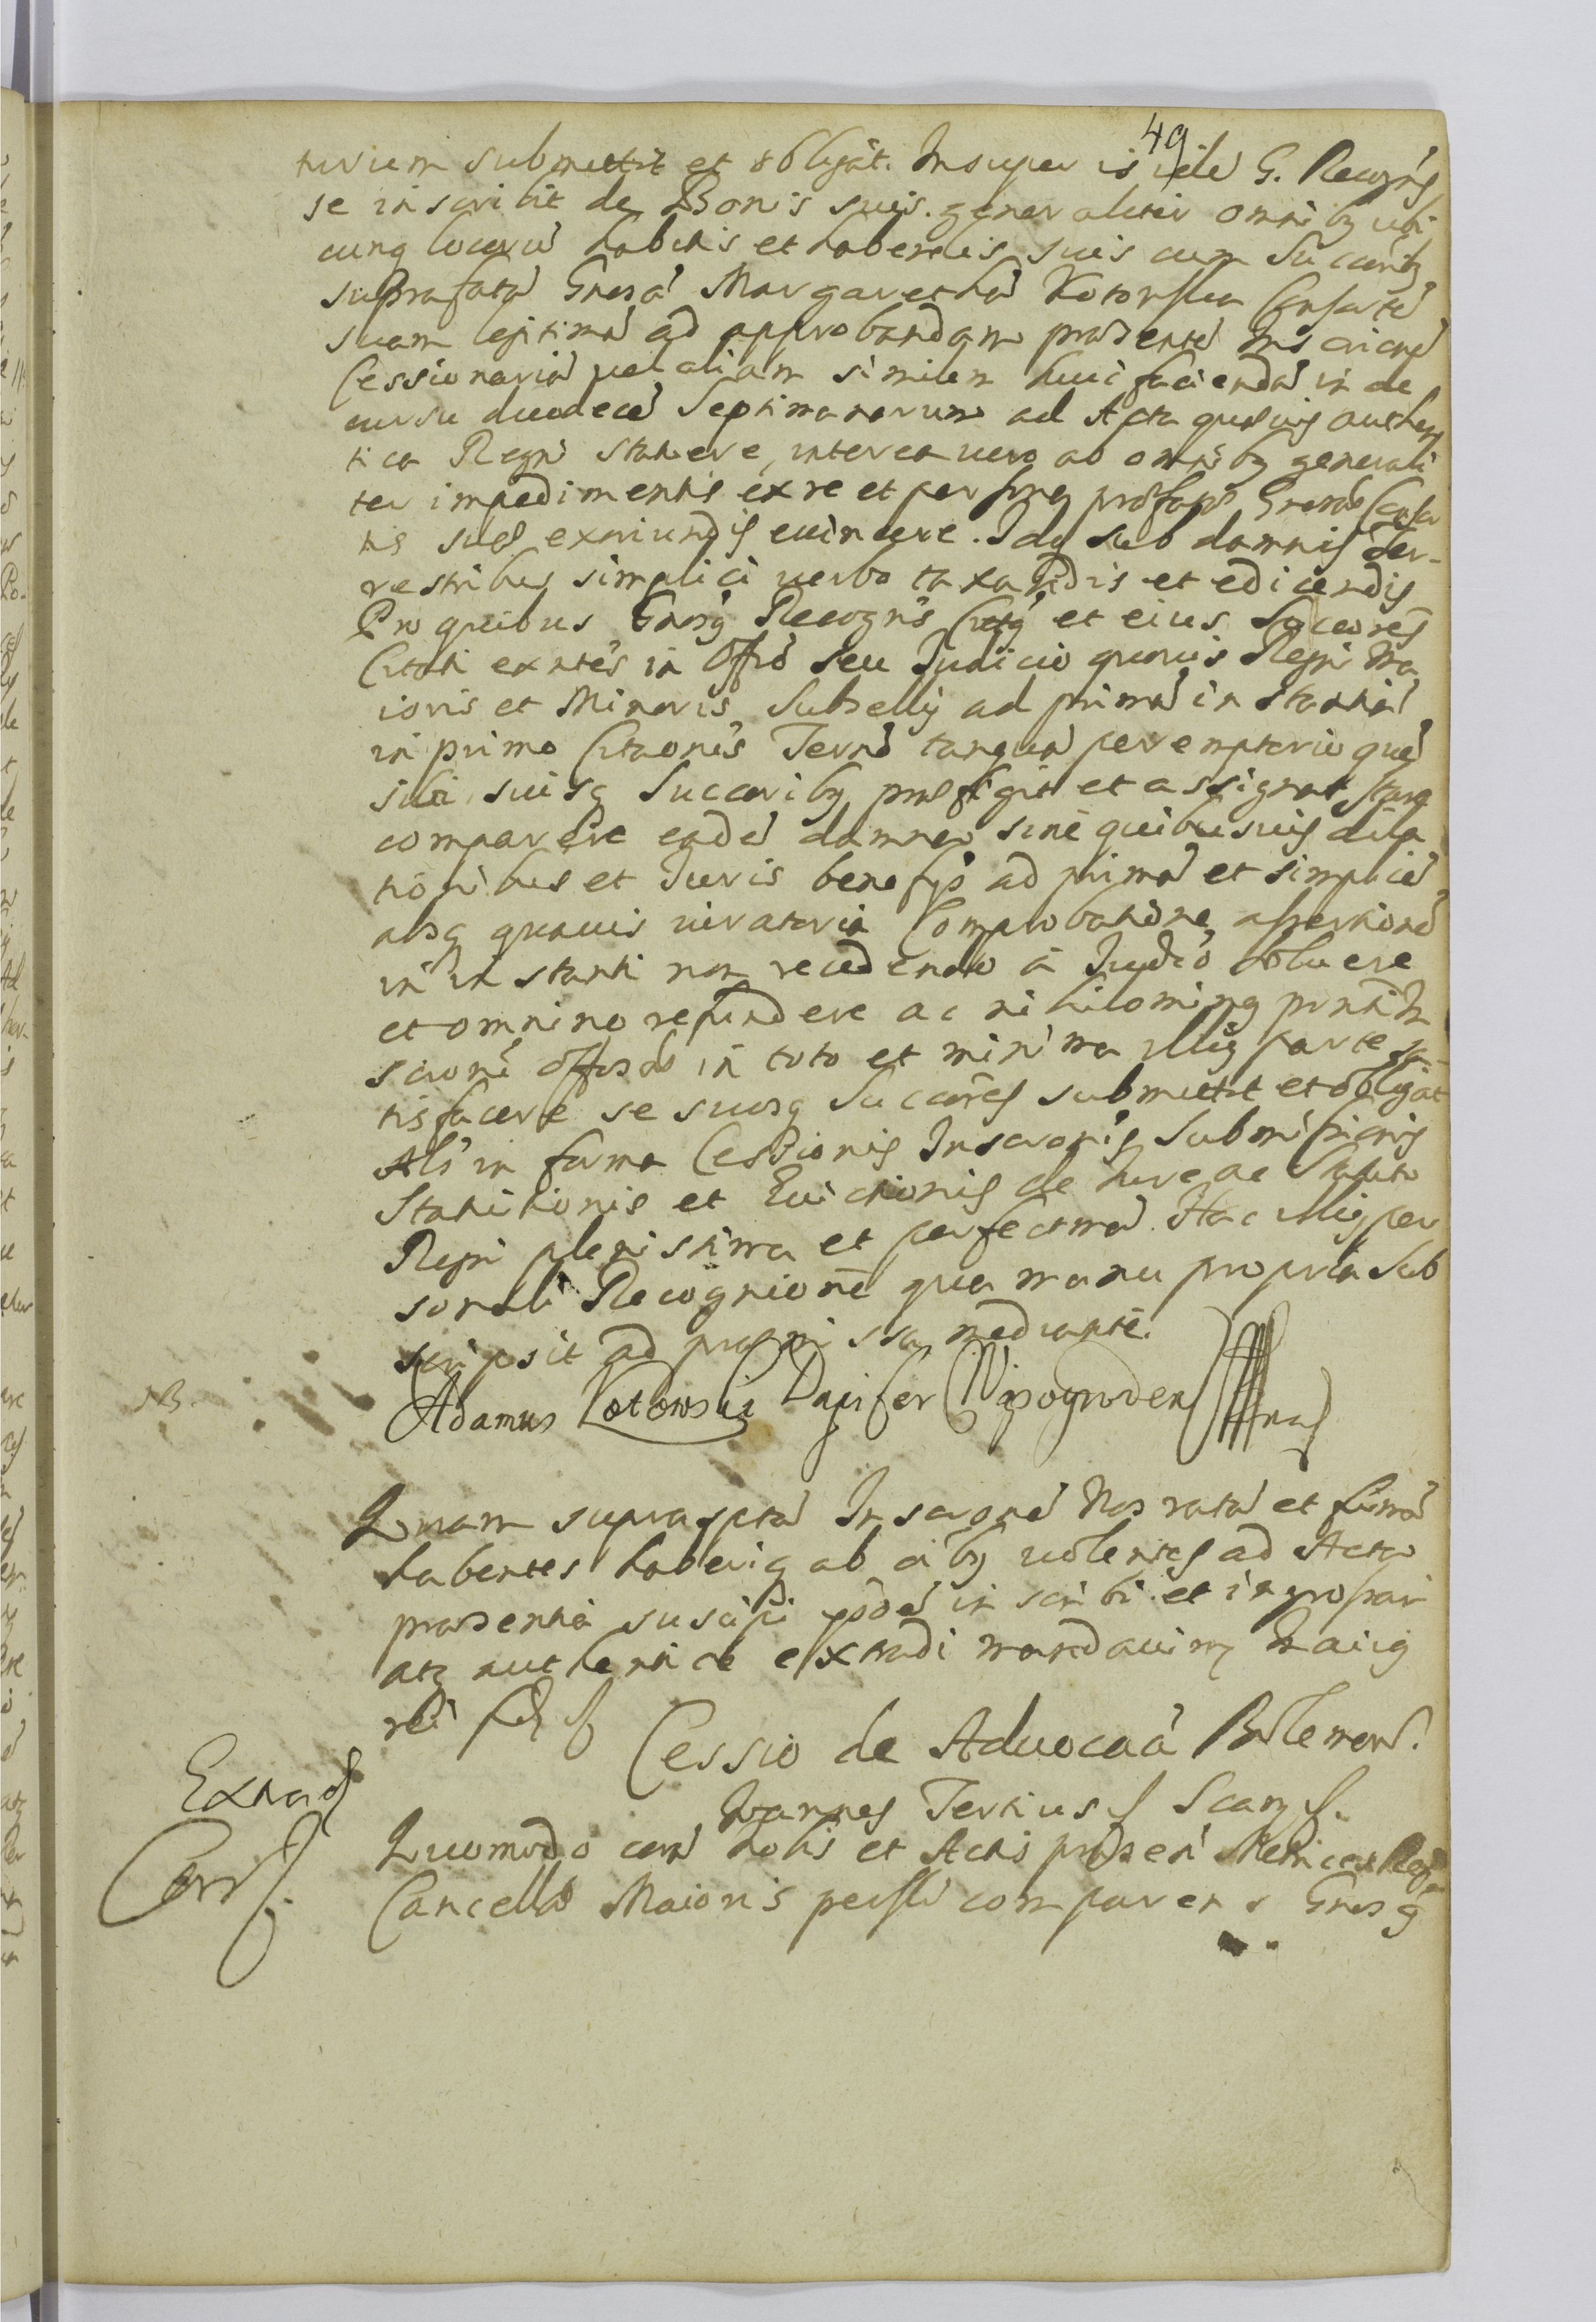 49
turum submittit et obligat. Insuper is idē G. Recogns
se inscribit de Bonis suis generaliter omnibq ubi
cunq locorū habitis et habendis suis cum Succoribq
suprafatā Gnosā Margarethā Kotowska Consortē
suam legitimā ad approbandam praesentē Inscrionē
Cessionariā vel aliam similem huic faciendā in de
cursu duodecē Septimanarum ad Acta quaevis authen
tica Regni statuere, interea vero ab omnibq generali
ter impedimentis ex re et person praefatae Gnosae Consor
tis suae exoriundis evincere. Idq sub damnis ter-
restribus simplici verbo taxandis et edicendis
Pro quibus Gnosq Recogns Cittq et eius Succores
Citati extntes in Offo seu Iudicio quovis Regni Ma
ioris et Minoris Subsellij ad primā instantiā
in primo Citaonis Termō tanquā peremptorio quē
sibi suisq Succoribq praefigit et assignat stare
comparere eadē damna sine quibusvis dila
tionibus et Iuris benefijs ad primā et simplicē
absq quavis iuratoria Comprobatione assertionē
in instanti non recedendo à Iudio solvere
et omnino refundere ac nihilominq pnti In
scrioni offosae in toto et minima illiq parte sa-
tisfacere se suosq Succores submittit et obligat
Als in forma Cessionis Inscronis Submissionis
Statitionis et Evictionis de Iure ac Statuto
Regni plenissima et perfectma. Hac illiq per
sonali Recognitione qua manu propria sub
scripsit ad praemissa mediante.
NB.
Adamus Kotowski Dapifer Wyszogroden mp
Quam suprascptā Inscronē Nos ratā et firmā
habentes haberiq ab oibq volentes ad Acta
praesentia suscipi eodē inscribi et ingrossari
atq authentice extradi mandavimq In cuiq
rei fid etc
Cessio de Advocaā Bolemow.
Extrad
Ioannes Tertius etc Scanf.
Corr.
Quomodo corā nobis et Actis praesen Metrices Regn
Cancellae Maioris persli comparens Gnosq